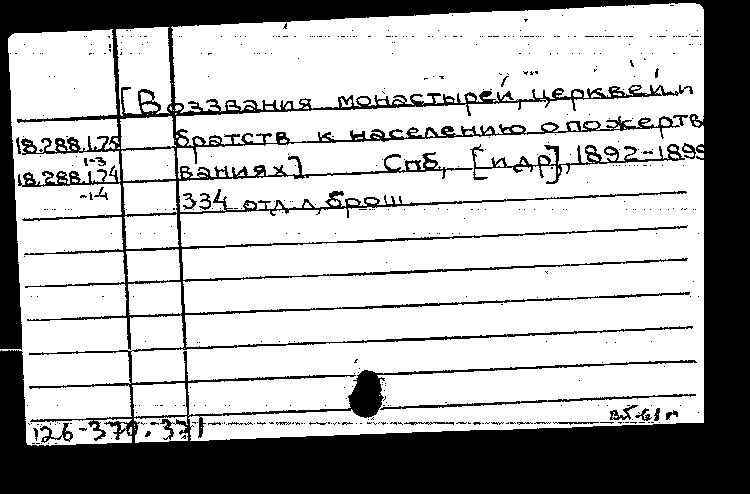 [Воззвания монастырей, церквей и
18.288.1.75 братств к населению о пожертв
1-3
18.288.1.74 ваниях]. Спб, [и др], 1892-1899
-1-4
334 отд. л, брош.
126-370.371